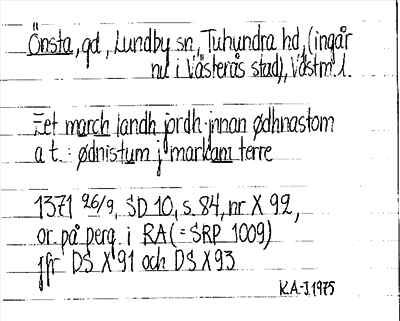 Önsta, gd, Lundby sn, Tuhundra hd, (ingår
nu i Västerås stad), Västm. l.
Eet march landh jordh innan ødhnastom
a t. : ødnistum j markam terre
1371 26/9, SD 10, s. 84, nr X 92,
or. på perg. i RA (= SRP 1009)
jfr DS X 91 och DS X 93
K.A-J. 1975